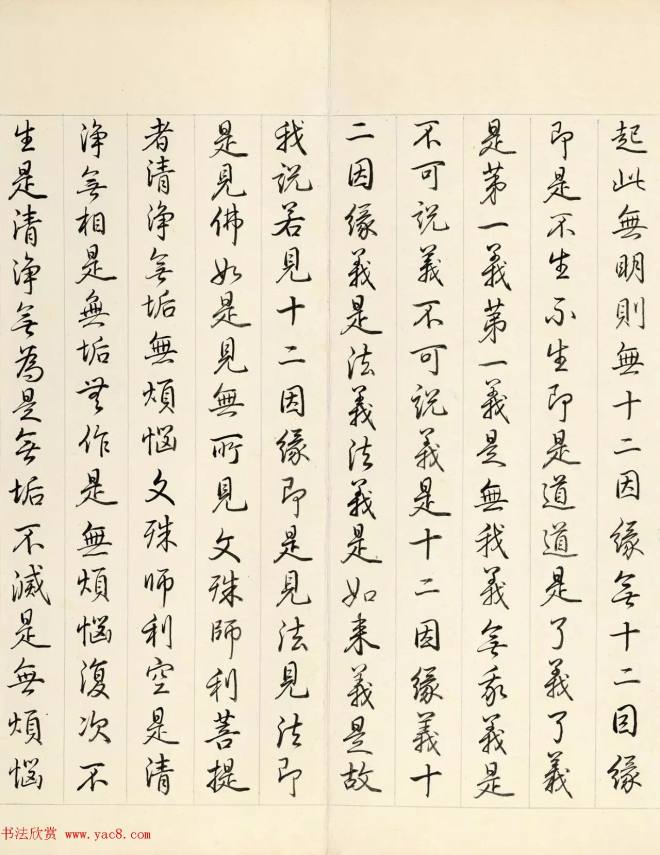 起此無明則無十二因緣無十二因緣
即是不生不生即是道道是了義了義
是第一義第一義是無我義無我義是
不可說義不可說義是十二因緣義十
二因緣義是法義法義是如来義是故
我說若見十二因緣即是見法見法即
是見佛如是見無所見文殊師利菩提
者清淨無垢無煩惱文殊師利空是清
淨無相是無垢無作是無煩惱復次不
生是清淨無為是無垢不滅是無煩惱
书法欣赏 www.yac8.com